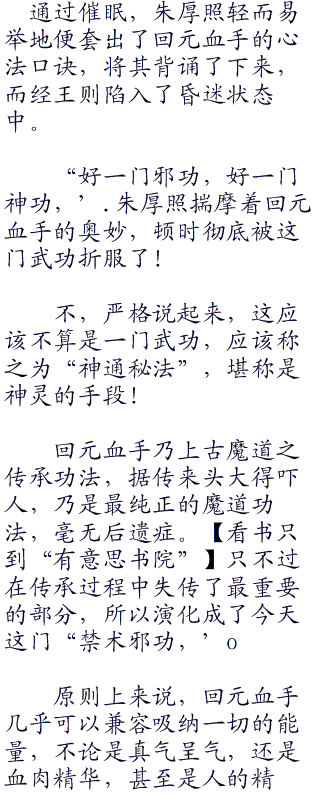 通过催眠，朱厚照轻而易
举地便套出了回元血手的心
法口诀，将其背诵了下来，
而经王则陷入了昏迷状态
中。
“好一门邪功，好一门
神功，’．朱厚照揣摩着回元
血手的奥妙，顿时彻底被这
门武功折服了！
不，严格说起来，这应
该不算是一门武功，应该称
之为“神通秘法”，堪称是
神灵的手段！
回元血手乃上古魔道之
传承功法，据传来头大得吓
人，乃是最纯正的魔道功
法，毫无后遗症。【看书只
到“有意思书院”】只不过
在传承过程中失传了最重要
的部分，所以演化成了今天
这门“禁术邪功，’o
原则上来说，回元血手
几乎可以兼容吸纳一切的能
量，不论是真气呈气，还是
血肉精华，甚至是人的精